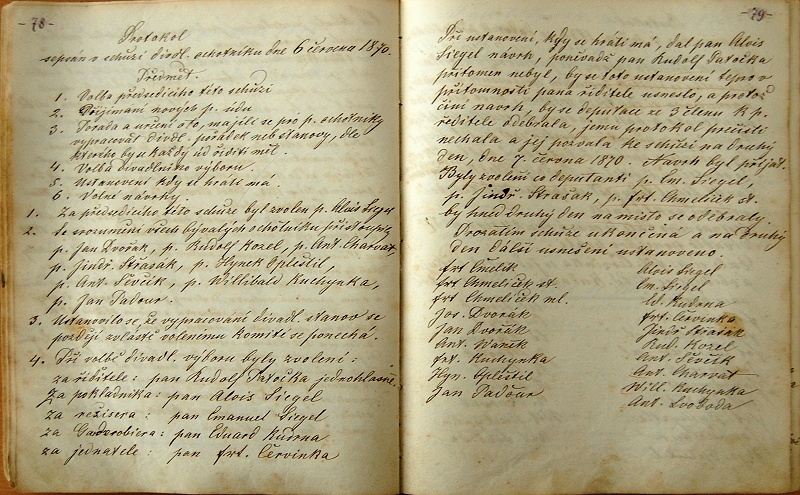 -78-
Protokol
sepsán o schůzi divdl. ochotníku dne 6 června 1870.
Předmět.
1. Volba předsedícího této schůzí
2. Přijímání nových p. údu
3. Porada a určení oto, mají-li se pro p. ochotníky
vypracovat divdl. pořádek neb stanovy, dle
kterého by se každý úd říditi měl.
4. Volba divadlního výboru.
5. Ustanovení kdy se hráti má.
6. Volné návrhy.
1. Za předsedícího této schůze byl zvolen p. Alois Siegel
2. Se srozumění všech bývalých ochotníku přistoupili
p. Jan Dvořák, p. Rudolf Kozel, p. Ant. Charvat,
p. Jindř. Strašák, p. Hynek Opleštil,
p. Ant. Ševčík, p. Willibald Kuchynka,
p. Jan Paďour.
3. Ustanovilo se, že vypracování divadl. stanov se
později zvláště volenému komité se ponechá.
4. Při volbě divadl. výboru byly zvolení:
za řiditele: pan Rudolf Patočka jednohlasně
za pokladníka: pan Alois Siegel
za režisera: pan Emanuel Siegel
za Garderobiera: pan Eduard Kudrna
za jednatele: pan Frt. Červinka
-79-
Při ustanovení, kdy se hráti má, dal pan Alois
Siegel návrh, poněvadž pan Rudolf Patočka
přítomen nebyl, by se toto ustanovení teprv v
přítomnosti pana řiditele usneslo, a protož
činí návrh, by se deputací ze 3 členu k p.
řediteli odebrala, jemu protokol přečísti
nechala a jej pozvala ke schůzi na druhý
den, dne 7. června 1870. Návrh byl přijat.
Byly zvolení co deputanti p. Em. Siegel,
p. Jindř. Strašák, p. Frt. Chmelíček st.
by hned druhý den na místo se odebraly.
Prozatím schůze ukončina a na druhý
den další usnešení ustanoveno.
Frt Čmelík
Frt Chmelíček st.
Frt Chmelíček ml.
Jos. Dvořák
Jan Dvořák
Ant. Waněk
Frt. Kuchynka
Hyn. Opleštil
Jan Paďour
Alois Siegel
Em. Siegel
Ed. Kudrna
Frt. Červinka
Jindř Strašák
Rud. Kozel
Ant. Ševčík
Ant. Charvát
Will. Kuchynka
Ant. Svoboda